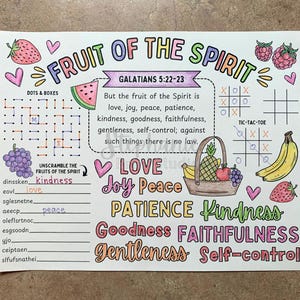 FRUIT OF THE SPIRIT
GALATIANS 5:22-23
But the fruit of the Spirit is
love, joy, peace, patience,
kindness, goodness, faithfulness,
gentleness, self-control; against
such things there is no law.
DOTS & BOXES
TIC-TAC-TOE
UNSCRAMBLE THE
FRUITS OF THE SPIRIT
kindness
eovl love
sgleenetne
aeecp peace
oleflortnoc
esgsoodn
yjo
ceiptaen
LOVE
Joy Peace
PATIENCE Kindness
Goodness FAITHFULNESS
Gentleness Self-control